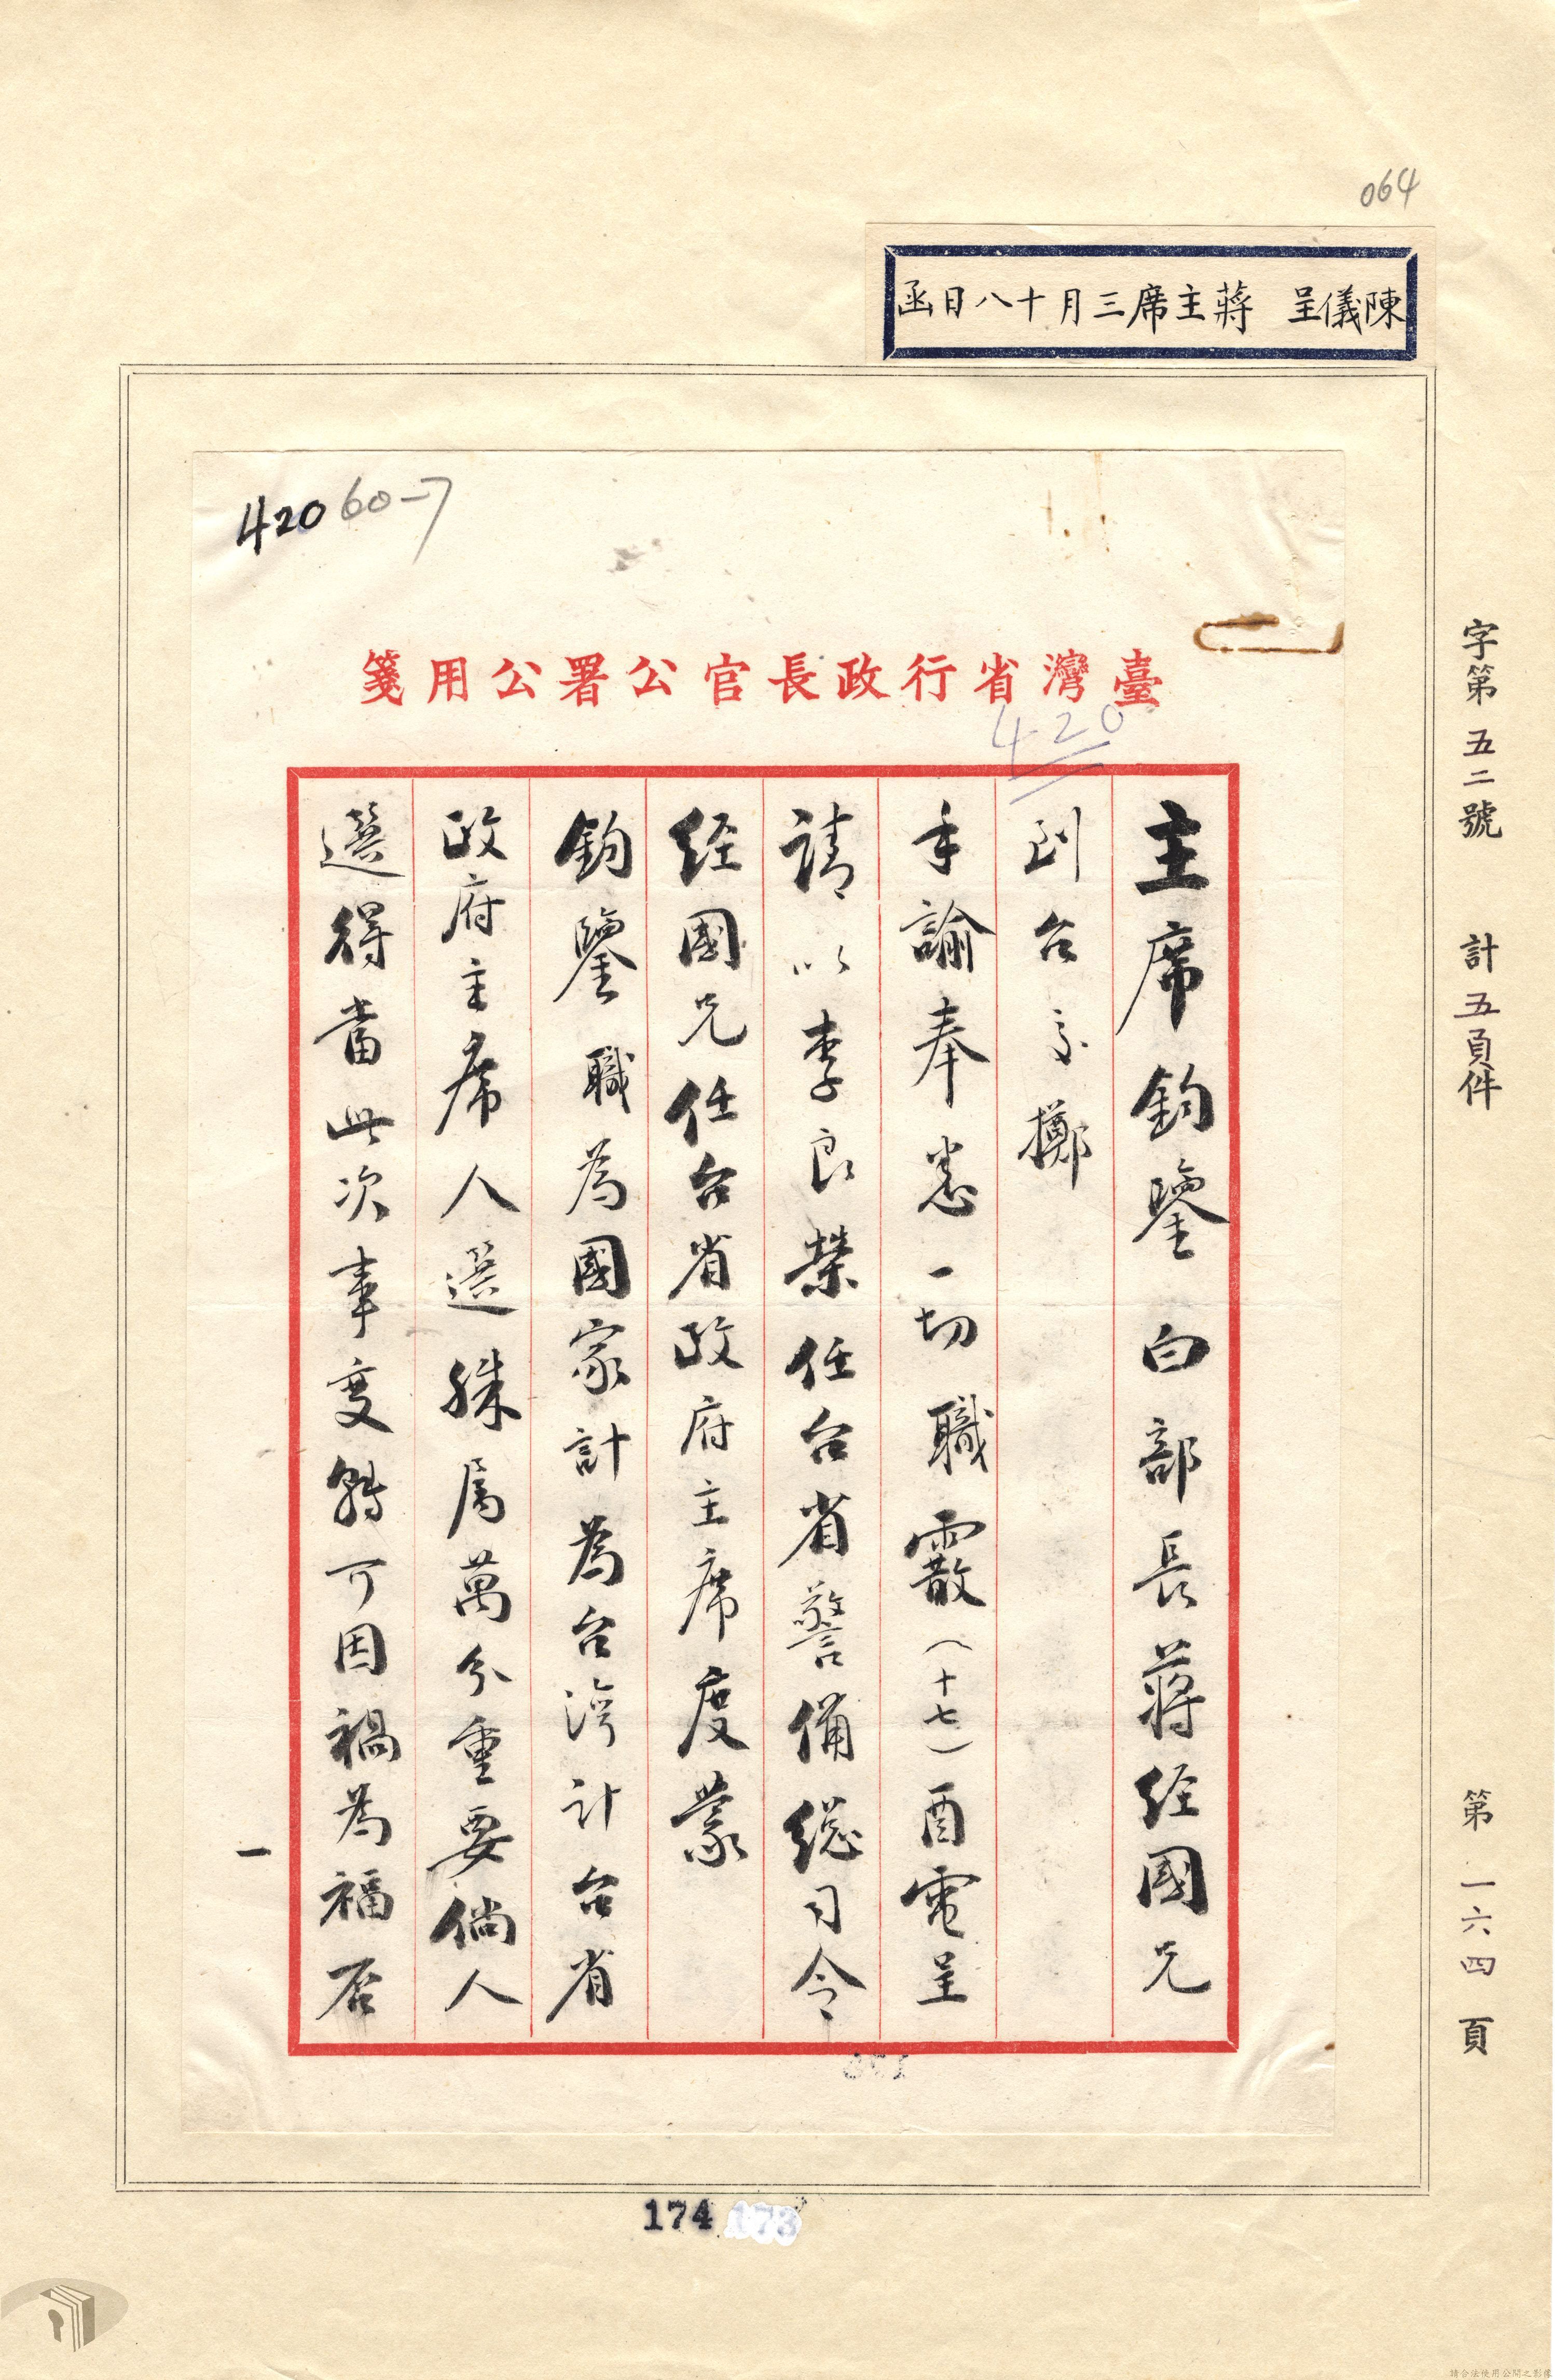 064
陳儀呈　蔣主席三月十八日函
42060-7
臺灣省行政長官公署公用箋
420
主席鈞鑒白部長蔣經國兄
到台交擲
手諭奉悉一切職霰（十七）酉電呈
請以李良榮任台省警備總司令
經國兄任台省政府主席度蒙
鈞鑒職為國家計為台灣計台省
政府主席人選殊屬萬分重要倘人
選得當此次事變歸可因禍為福否
一
字第五二號　計五頁件　第一六四頁
174 173
請合法使用公開之影像